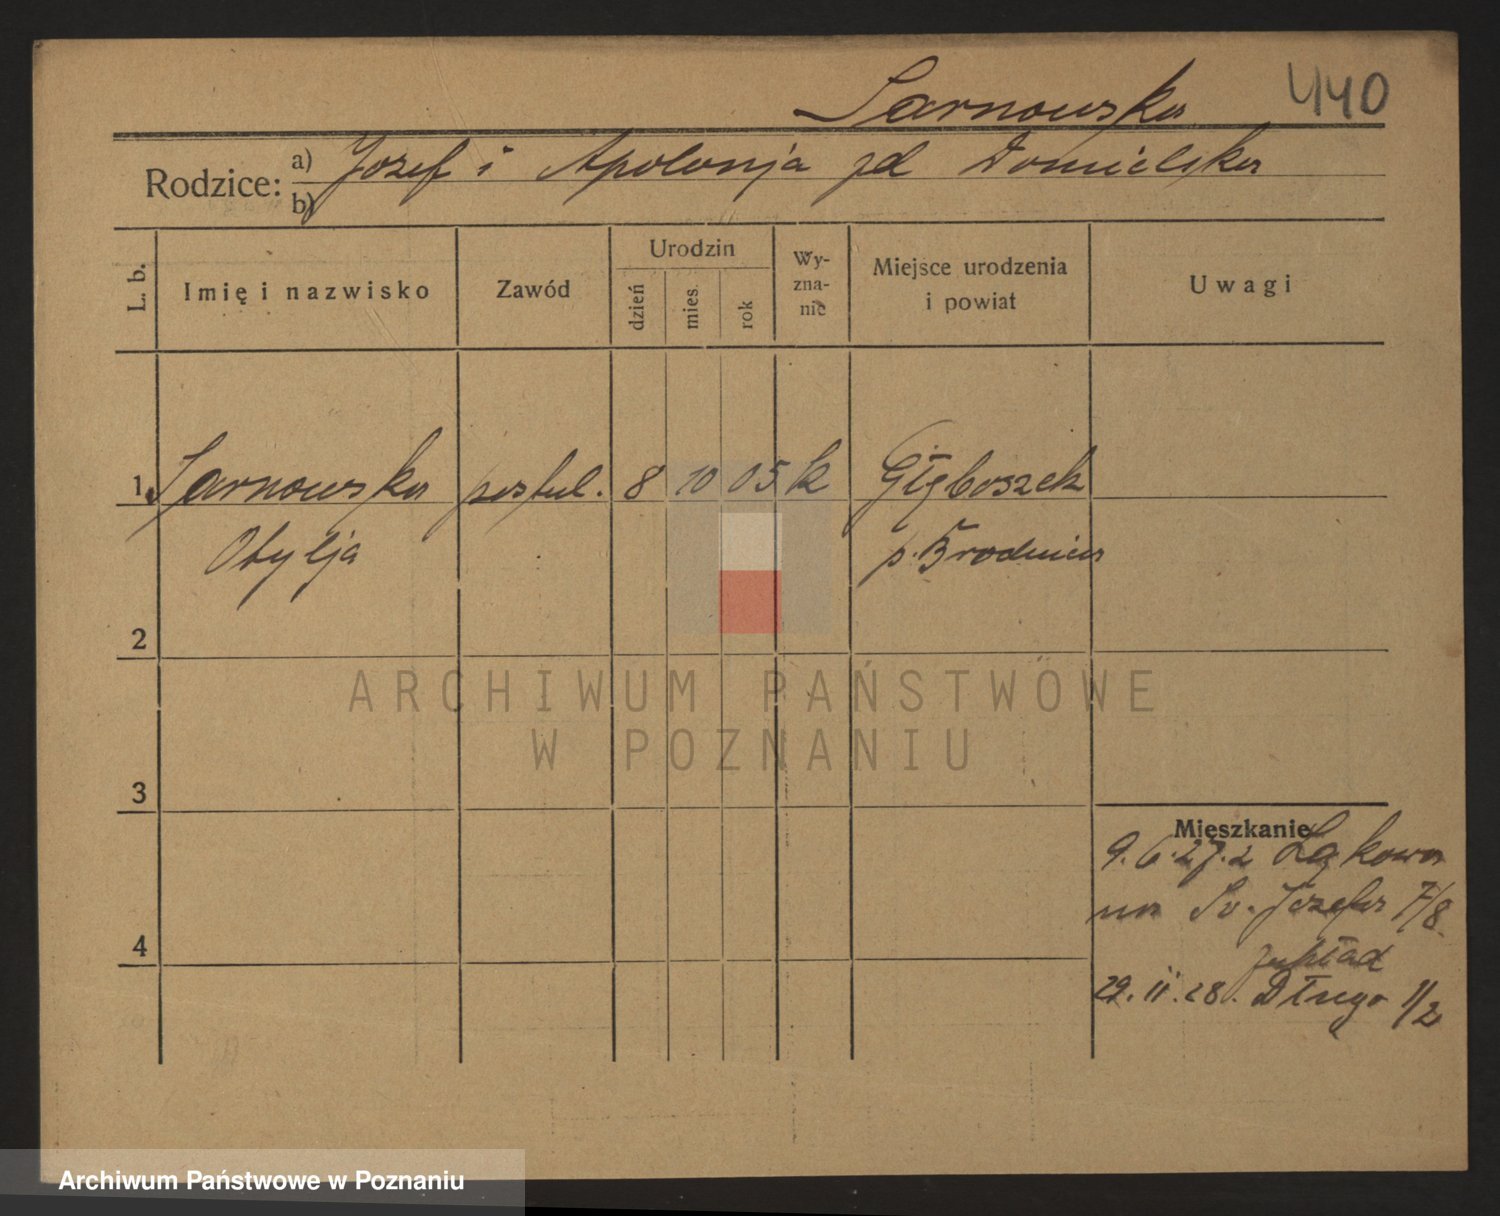 Sarnowska 440
Rodzice: a) Jozef i Apolonja zd Domielska
b)
L. b. Imię i nazwisko Zawód Urodzin dzień mies. rok Wyznanie Miejsce urodzenia i powiat Uwagi
1 Sarnowska postul. 8 10 05 k Głęboszek
Otylja p. Brodnica
2
ARCHIWUM PAŃSTWOWE
W POZNANIU
3
Mieszkanie
9. 6. 27. z Łąkowa
na Św. Józefa 7/8
4
29. 11. 28. Długa 1/2
Archiwum Państwowe w Poznaniu